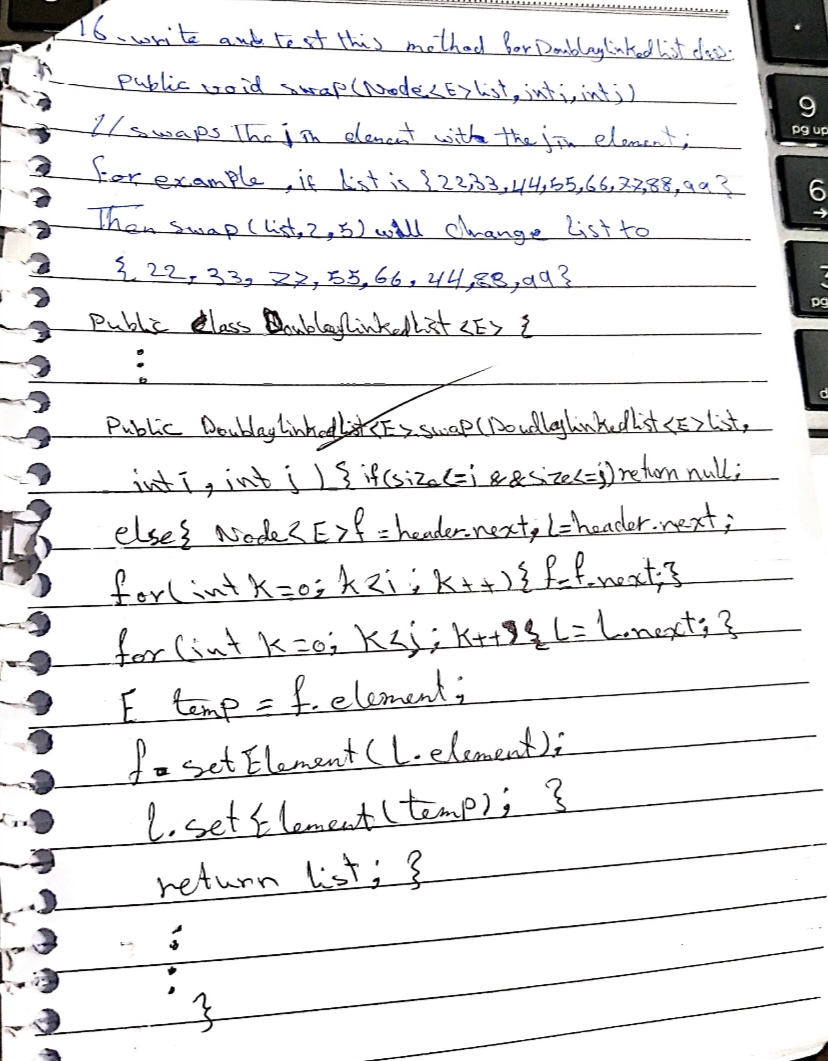 16. write and test this method for DoublayLinkedList class:
public void swap(Node<E> list, int i, int j)
// swaps The i th element with the j th element;
for example, if list is {22,33,44,55,66,77,88,99}
Then swap (list,2,5) will change list to
{ 22, 33, 77, 55, 66, 44, 88, 99}
public class DoublayLinkedList <E> {
⋮
Public DoublayLinkedList<E> swap(DoudlayLinkedList<E> list,
int i, int j ) { if(size<=i && size<=j) return null;
else{ Node<E> f = header.next, L=header.next;
for(int k=0; k<i; k++){ f=f.next;}
for (int k=0; k<j; k++){ L= L.next; }
E temp = f. element;
f. setElement (L.element);
l. setElement (temp); }
return list; }
⋮
}
9
pg up
6
→
pg